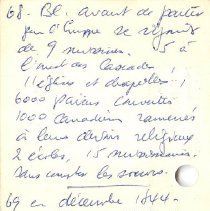 68. Bl. avant de partir
pour l'Europe se réjouit
de 9 missions. 5 à
l'ouest des Cascades
11 églises et chapelles!
6000 païens convertis
1000 Canadiens ramenés
à leurs devoirs religieux
2 écoles, 15 missionnaires.
Sans compter les soeurs.
69 en décembre 1844.